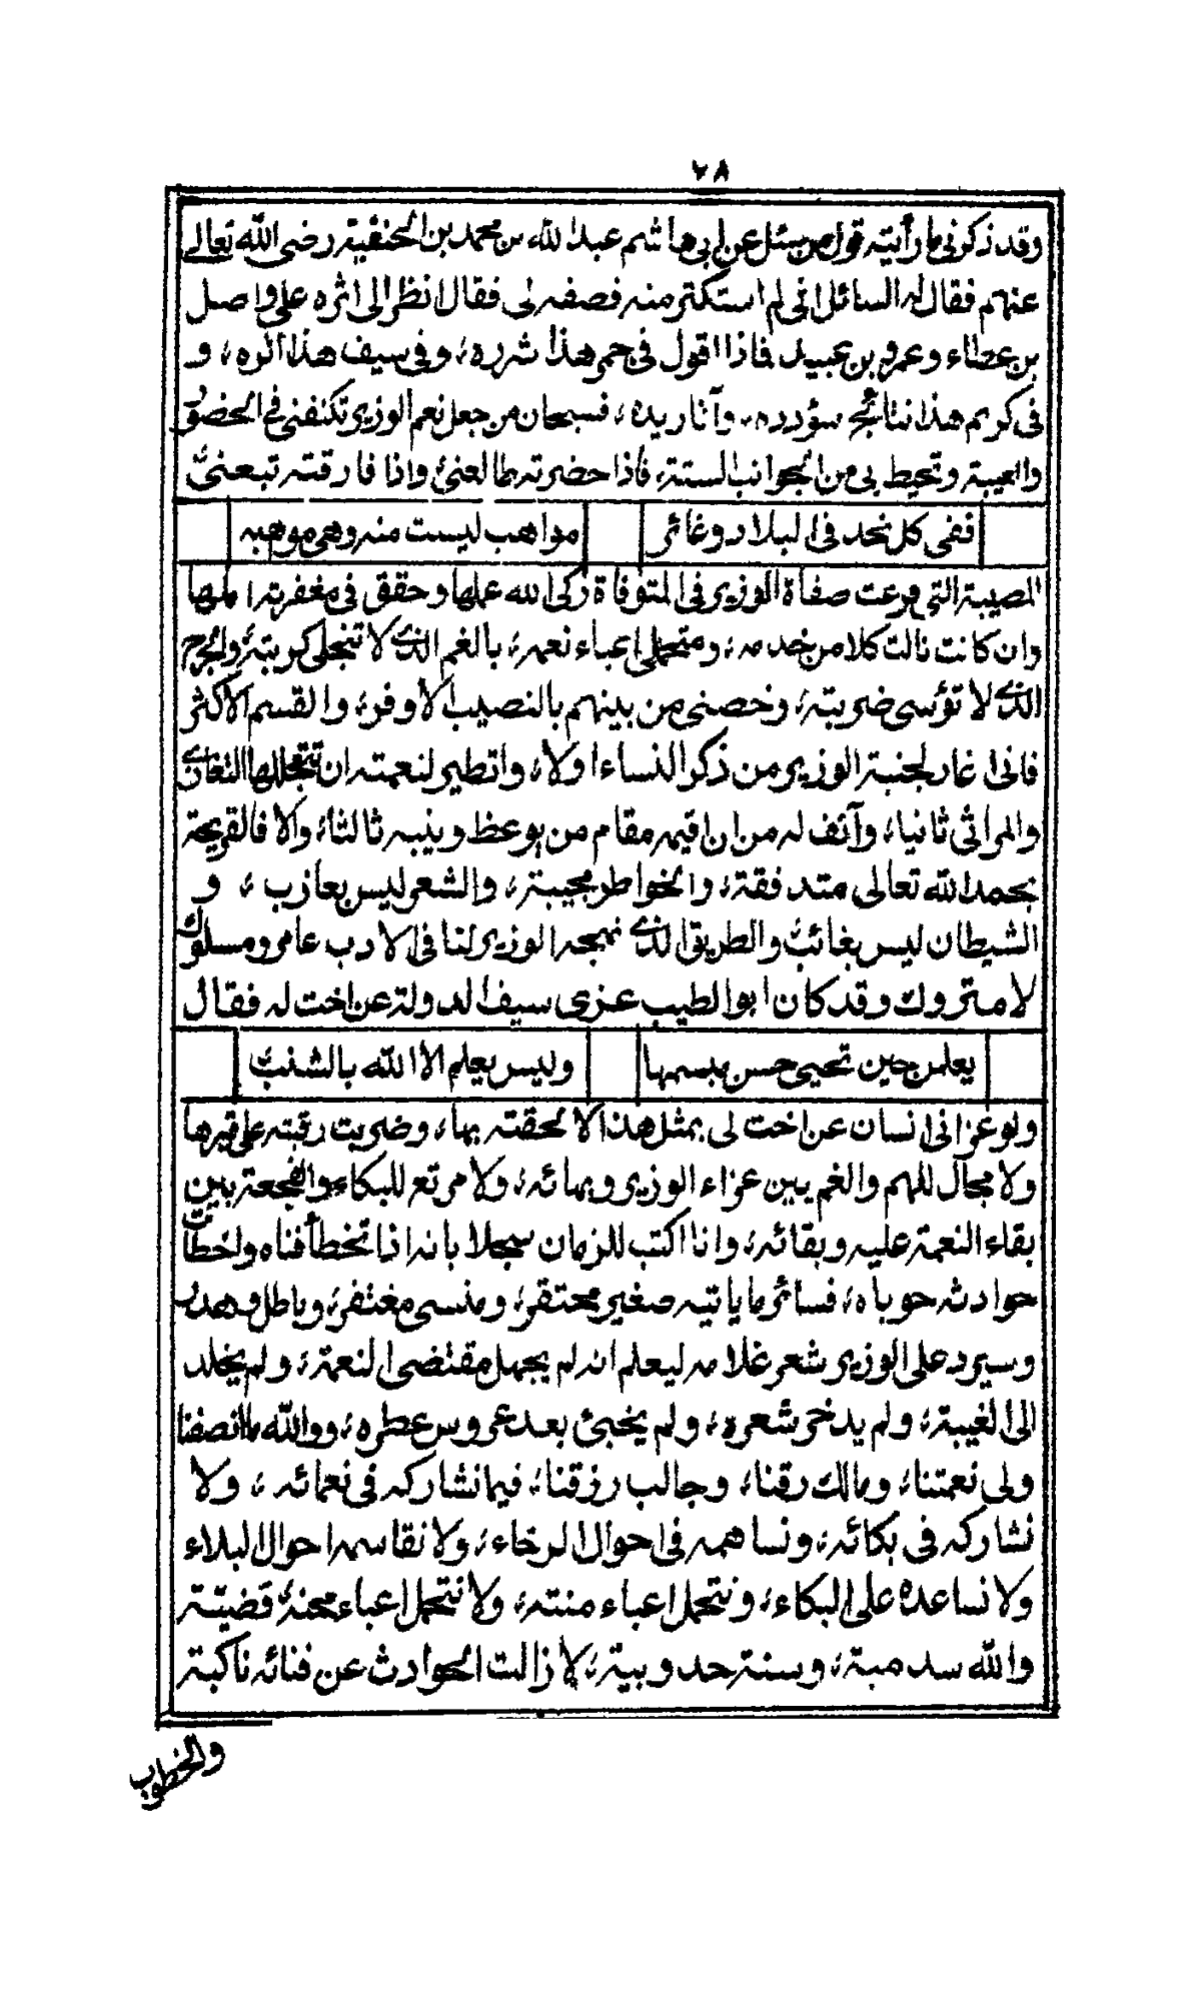 ٧٨
وقد ذكرنى ما رأيته قول من سئل عن ابى هاشم عبد الله بن محمد بن الحنفية رضى الله تعالى
عنهم فقال له السائل انى لم استكثر منه فصفه لى فقال انظر الى اثره على واصل
بن عطاء وعمرو بن عبيد فاذا اقول فى جمر هذا شرره، وفى سيف هذا اثره، و
فى كريم هذا نتائج سؤدده، وآثار يده، فسبحان من جعل نعم الوزير تكنفنى فى الحضور
والغيبة وتحيط بى من الجوانب الستة، فاذا حضرته طالعنى واذا فارقته تبعنى
ففى كل نجد فى البلاد وغائر
مواهب ليست منه وهى مواهبه
المصيبة التى قرعت صفاة الوزير فى المتوفاة زكى الله عملها وحقق فى مغفرته املها
وان كانت نالت كلا من خدمه، ومتحملى اعباء نعمه، بالغم الذى لا تنجلى كربته، والجرح
الذى لا تؤسى ضربته، وخصنى من بينهم بالنصيب الاوفر، والقسم الاكثر
فانى اغار لجنبة الوزير من ذكر النساء اولا، واتطير لنعمته ان تتخللها التعازى
والمراثى ثانيا، وآنف له من ان اقيمه مقام من يوعظ وينبه ثالثا، والا فالقريحة
بحمد الله تعالى متدفقة، والخواطر مجيبة، والشعر ليس بعازب، و
الشيطان ليس بغائب، والطريق الذى نهجه الوزير لنا فى الادب عامر ومسلوك
لا متروك وقد كان ابو الطيب عزى سيف الدولة عن اخت له فقال
يعلمن حين تحيى حسن مبسمها
وليس يعلم الا الله بالشنب
ولو عزانى انسان عن اخت لى بمثل هذا الا لحقته بها، وضربت رقبته على قبرها
ولا مجال للهم والغم بين عزاء الوزير وبهائه، ولا مرتع للبكاء والفجعة بين
بقاء النعمة عليه وبقائه، وانا اكتب للزمان سجلا بانه اذا تخطأ فناه واخطأت
حوادثه حوباه، فسائر ما ياتيه صغير محتقر، ومنسى مغتفر، وباطل وهدر
وسيرد على الوزير شعر غلامه ليعلم انه لم يجهل مقتضى النعمة، ولم يخلد
الى الغيبة، ولم يدخر شعره، ولم يخبئ بعد عروس عطره، ووالله ما انصفنا
ولى نعمتنا، ومالك رقنا، وجالب رزقنا، فيما نشاركه فى نعمائه، ولا
نشاركه فى بكائه، ونساهمه فى احوال الرخاء، ولا نقاسمه احوال البلاء
ولا نساعده على البكاء، ونتحمل اعباء منته، ولا نتحمل اعباء محنه، قضيّة
والله سدمية، وسنة حدوبية، لا زالت الحوادث عن فنائه ناكبة
والخطوب